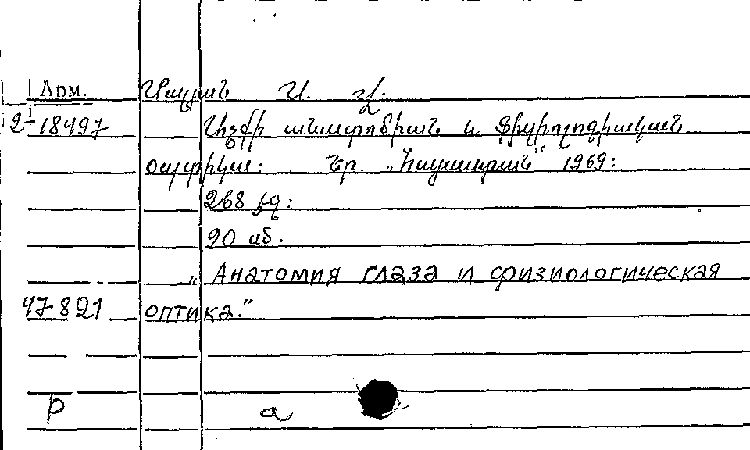 Арм.
2-18497 Աչքի անատոմիան և ֆիզիոլոգիական
օպտիկա: Եր „Հայաստան" 1969:
268 էջ:
90 սմ.
„Анатомия глаза и физиологическая
47821 оптика."
р а